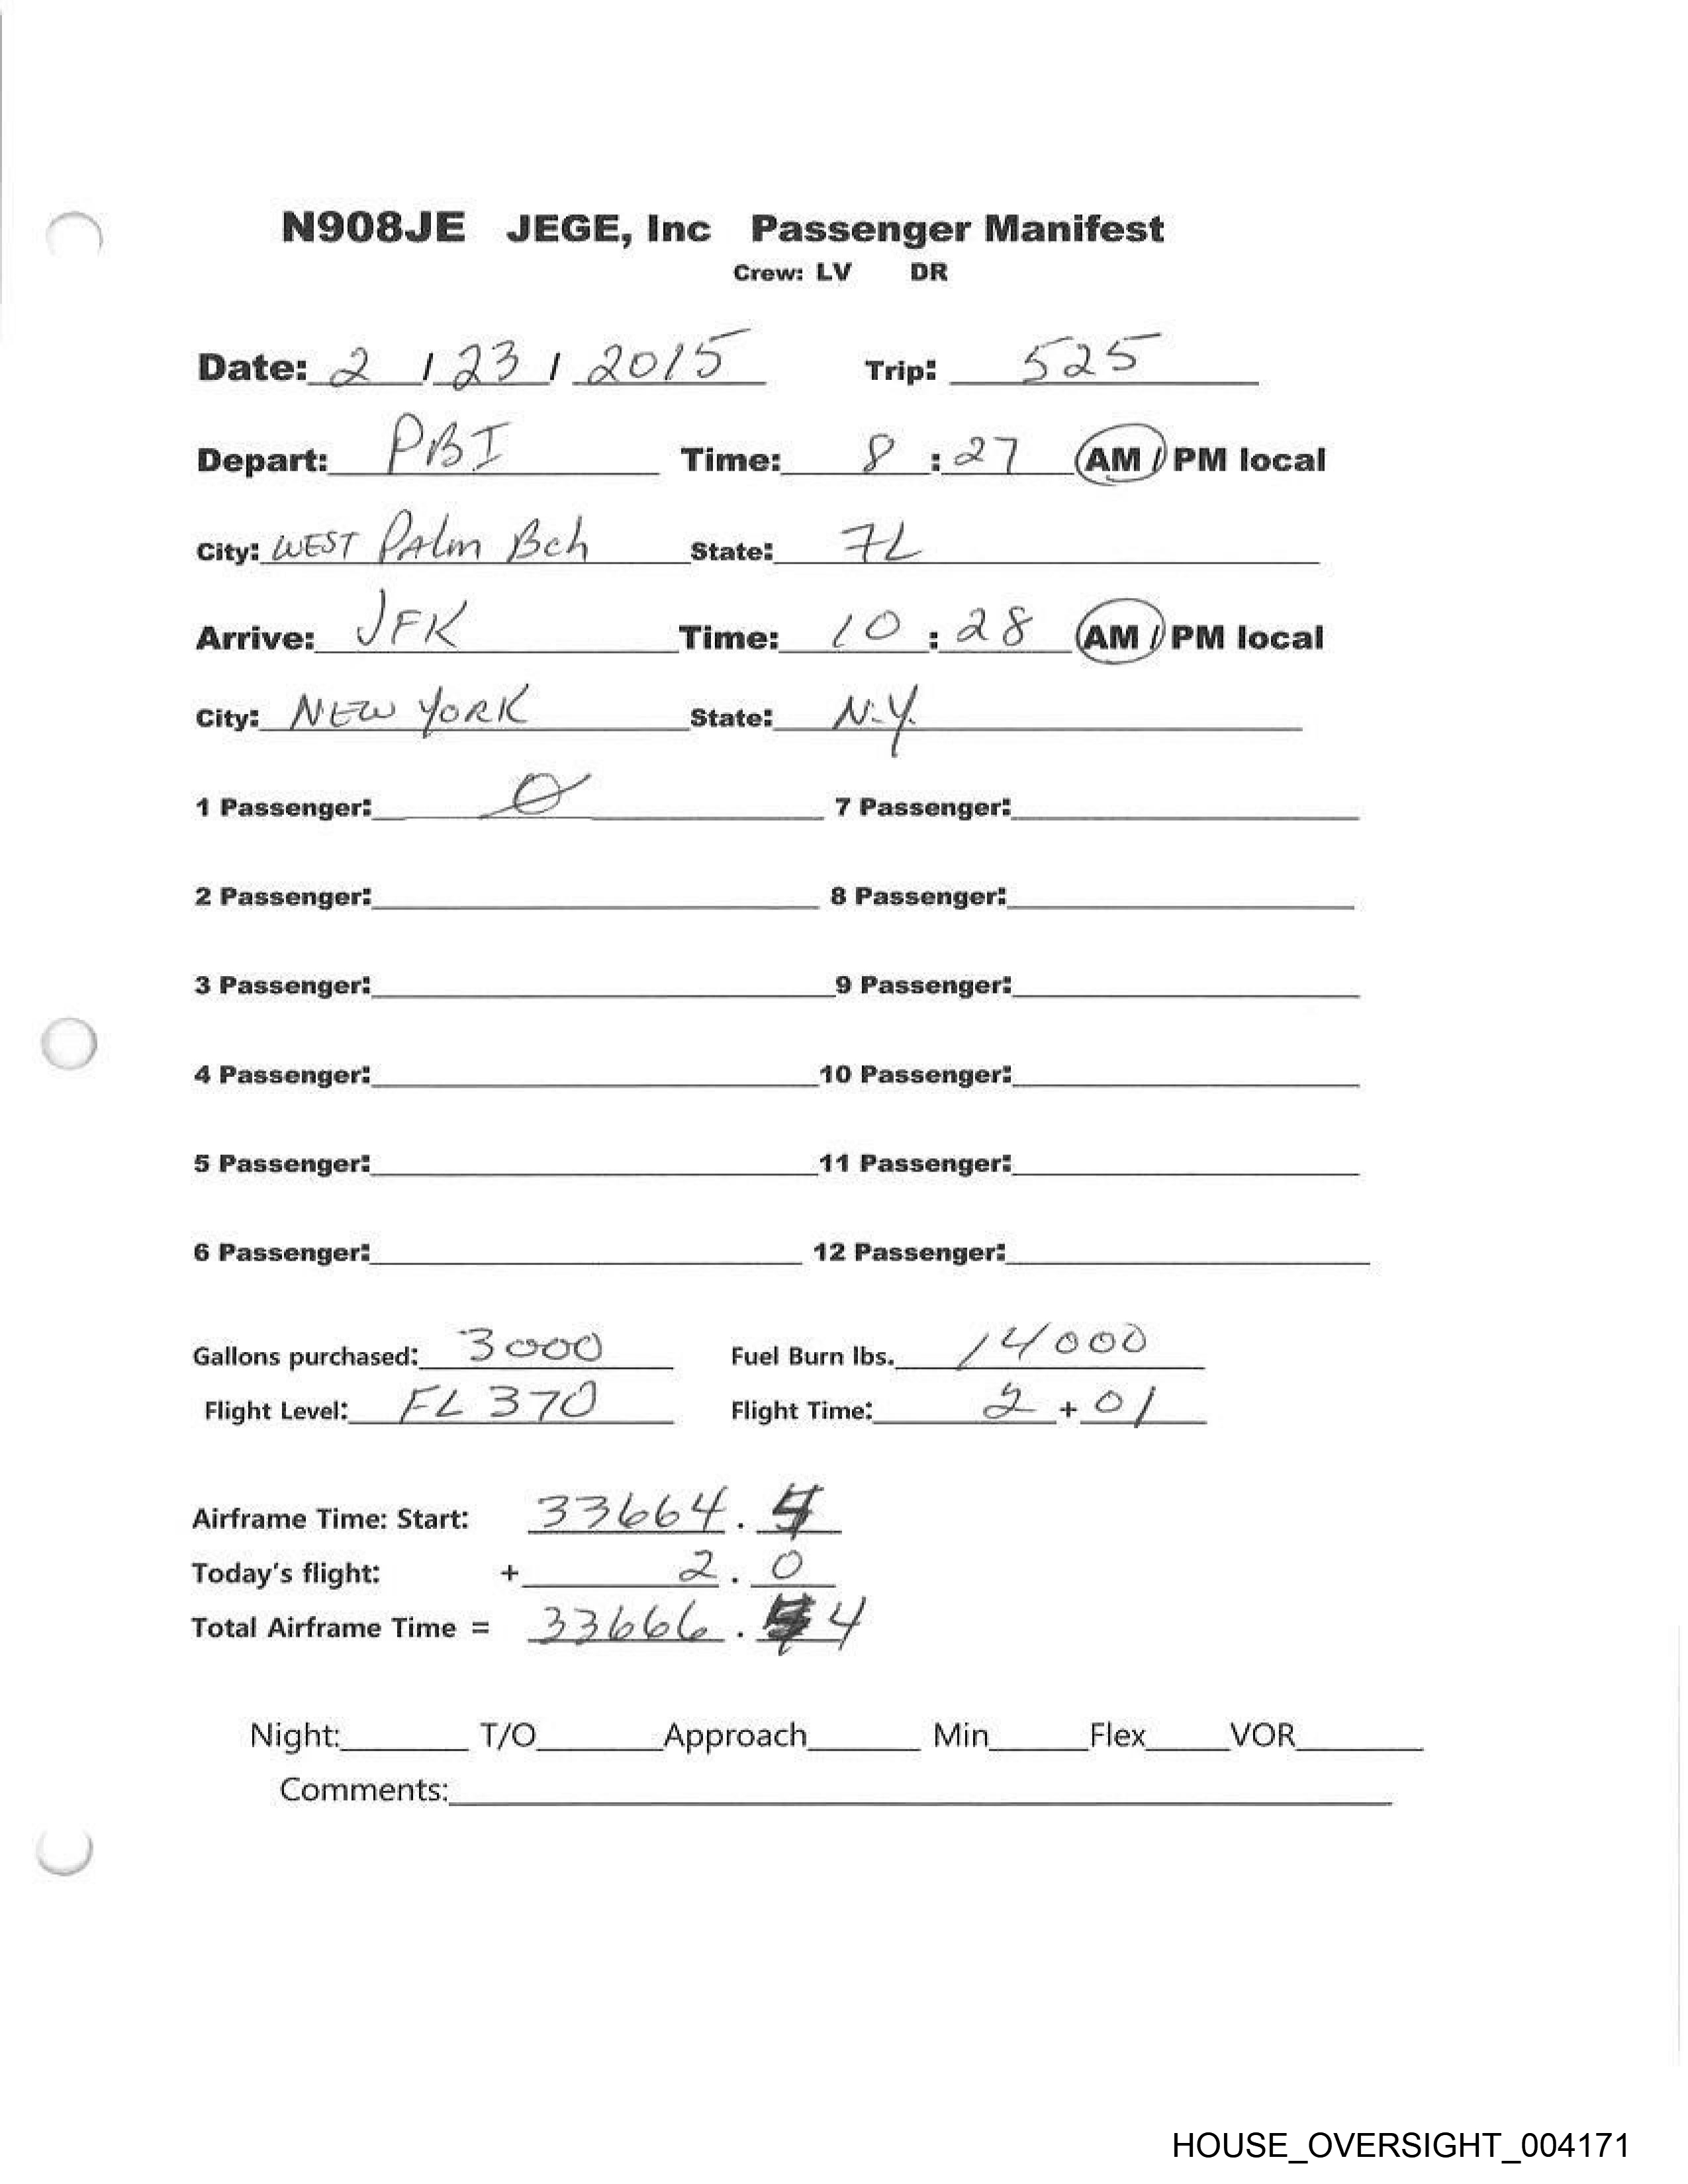 N908JE JEGE, Inc Passenger Manifest
Crew: LV DR
Date: 2 / 23 / 2015 Trip: 525
Depart: PBI Time: 8 : 27 AM / PM local
City: WEST PAlm Bch State: FL
Arrive: JFK Time: 10 : 28 AM / PM local
City: NEW YORK State: N.Y.
1 Passenger: 0 7 Passenger:
2 Passenger: 8 Passenger:
3 Passenger: 9 Passenger:
4 Passenger: 10 Passenger:
5 Passenger: 11 Passenger:
6 Passenger: 12 Passenger:
Gallons purchased: 3000 Fuel Burn lbs. 14000
Flight Level: FL 370 Flight Time: 2 + 01
Airframe Time: Start: 33664 . 4
Today's flight: + 2 . 0
Total Airframe Time = 33666 . 4
Night: T/O Approach Min Flex VOR
Comments:
HOUSE_OVERSIGHT_004171